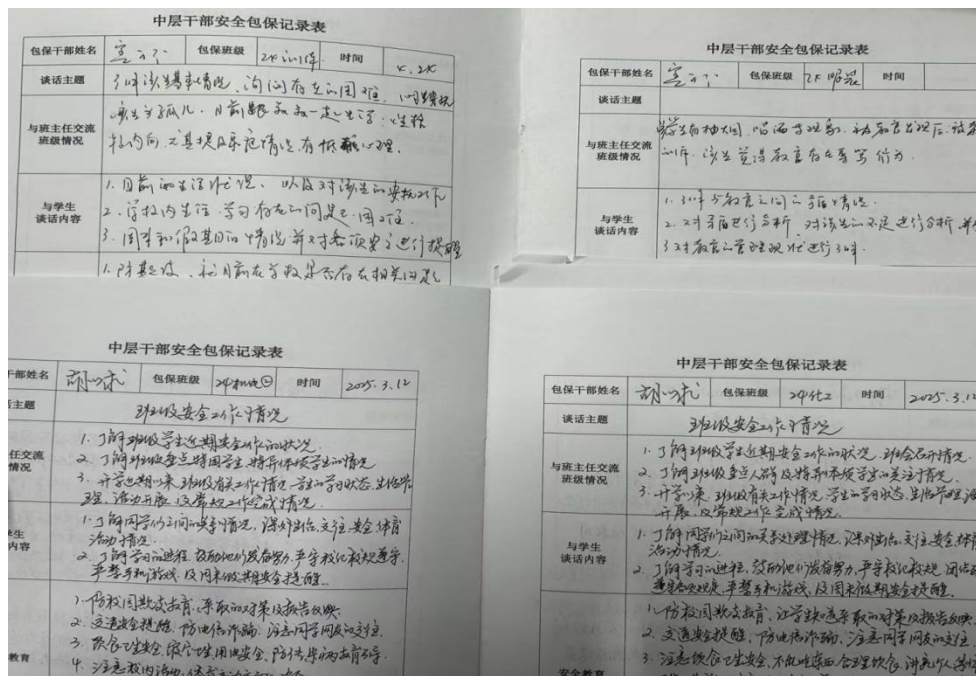 中层干部安全包保记录表
包保干部姓名 包保班级 时间
谈话主题 了解该生基本情况、询问存在的困难、
与班主任交流
班级情况
该生为孤儿、目前跟 一起生活；性格
较内向，尤其提及家庭情况，有 心理。
与学生
谈话内容
1. 目前的生活状况、以及对该生的
2. 学校内生活、学习存在的问题与困难。
3. 周末和假期的情况并对各项安全进行提醒
1. 防欺凌、 目前在学校是否存在相关问题
中层干部安全包保记录表
包保干部姓名 包保班级 时间
谈话主题
与班主任交流
班级情况
学生有抽烟、喝酒等现象、 教官发现后、被
该生觉得教官存在辱骂行为.
与学生
谈话内容
1. 了解与教官之间的矛盾情况.
2. 对矛盾进行分析 对该生的不足进行分析
3 对教官的管理现状进行了解
中层干部安全包保记录表
干部姓名 包保班级 时间 2025.3.12
主题 班级安全工作情况
任交流
情况
1. 了解班级学生近期安全工作的状况
2. 了解班级重点特困学生、特异体质学生的情况
3. 开学近期以来、班级有关工作情况、学生的学习状态、生活
管理、活动开展、及常规工作完成情况.
学生
内容
1. 了解同学们之间的关系情况、课外活动、交往、安全、体育
活动情况
2. 了解学习的进程、鼓励他们发奋努力、严守校纪校规
严禁手机游戏、及周末假期安全提醒.
教育
1. 防校园欺凌教育、采取的对策及报告反映
2. 交通安全提醒、防电信诈骗、注意同学网友的交往
3. 饮食卫生安全、 用电安全、防传染病教育
4. 注意校内活动、
中层干部安全包保记录表
包保干部姓名 包保班级 24化2 时间 2025.3.12
谈话主题 班级安全工作情况
与班主任交流
班级情况
1. 了解班级学生近期安全工作的状况、班会召开情况.
2. 了解班级重点人群及特异体质学生的关注情况.
3. 开学以来、班级有关工作情况、学生的学习状态、生活管理、活
开展、及常规工作完成情况.
与学生
谈话内容
1. 了解同学们之间的关系处理情况、课外活动、交往、安全、体育
活动情况.
2. 了解学习的进程、鼓励他们发奋努力、严守校纪校规、团结
严禁手机游戏、及周末假期安全提醒.
安全教育
1. 防校园欺凌教育、让学生知道采取的对策及报告反映.
2. 交通安全提醒、防电信诈骗、注意同学网友的交往
3. 注意饮食卫生安全、不乱吃东西、合理饮食、讲究个人